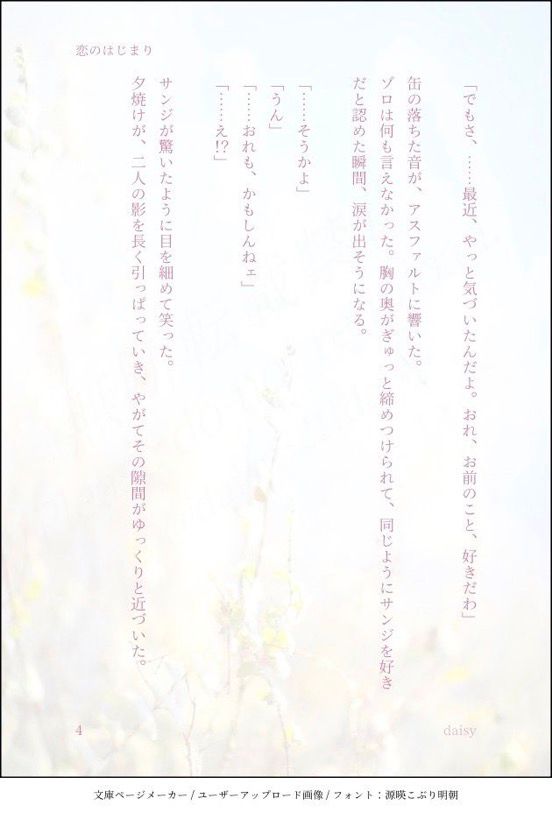 恋のはじまり
「でもさ、……最近、やっと気づいたんだよ。おれ、お前のこと、好きだわ」
缶の落ちた音が、アスファルトに響いた。
ゾロは何も言えなかった。胸の奥がぎゅっと締めつけられて、同じようにサンジを好き
だと認めた瞬間、涙が出そうになる。
「……そうかよ」
「うん」
「……おれも、かもしんねェ」
「……え!?」
サンジが驚いたように目を細めて笑った。
夕焼けが、二人の影を長く引っぱっていき、やがてその隙間がゆっくりと近づいた。
4
daisy
文庫ページメーカー / ユーザーアップロード画像 / フォント：源暎こぶり明朝